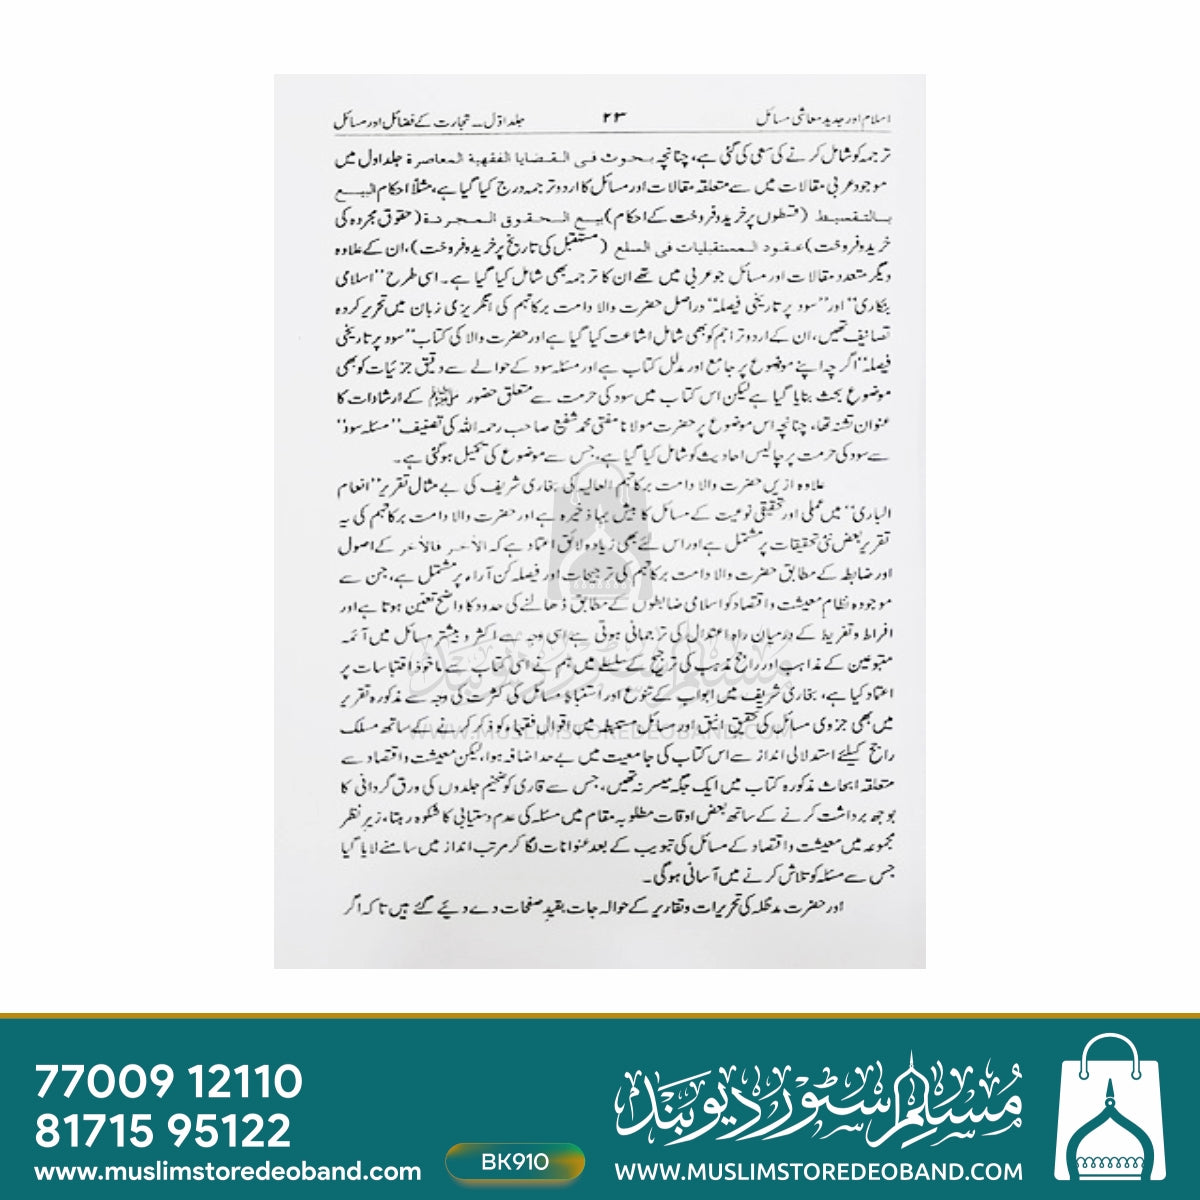 اسلام اور جدید معاشی مسائل ۲۳ جلد اوّل ـ تجارت کے فضائل اور مسائل
ترجمہ کو شامل کرنے کی سعی کی گئی ہے، چنانچہ بحوث فی القضایا الفقهیة المعاصرة جلد اول میں
موجود عربی مقالات میں سے متعلقہ مقالات اور مسائل کا اردو ترجمہ درج کیا گیا ہے، مثلاً احکام البیع
بالتقسیط (قسطوں پر خرید و فروخت کے احکام) بیع الحقوق المجردة (حقوق مجردہ کی
خرید و فروخت) عقود المستقبلیات فی السلع (مستقبل کی تاریخ پر خرید و فروخت)، ان کے علاوہ
دیگر متعدد مقالات اور مسائل جو عربی میں تھے ان کا ترجمہ بھی شامل کیا گیا ہے۔ اسی طرح ’’اسلامی
بنکاری‘‘ اور ’’سود پر تاریخی فیصلہ‘‘ دراصل حضرت والا دامت برکاتہم کی انگریزی زبان میں تحریر کردہ
تصانیف تھیں، ان کے اردو تراجم کو بھی شامل اشاعت کیا گیا ہے اور حضرت والا کی کتاب ’’سود پر تاریخی
فیصلہ‘‘ اگرچہ اپنے موضوع پر جامع اور مدلل کتاب ہے اور مسئلہ سود کے حوالے سے دقیق جزئیات کو بھی
موضوع بحث بنایا گیا ہے لیکن اس کتاب میں سود کی حرمت سے متعلق حضور ﷺ کے ارشادات کا
عنوان تشنہ تھا، چنانچہ اس موضوع پر حضرت مولانا مفتی محمد شفیع صاحب رحمہ اللہ کی تصنیف ’’مسئلہ سود‘‘
سے سود کی حرمت پر چالیس احادیث کو شامل کیا گیا ہے، جس سے موضوع کی تکمیل ہوگئی ہے۔
علاوہ ازیں حضرت والا دامت برکاتہم العالیہ کی بخاری شریف کی بے مثال تقریر ’’انعام
الباری‘‘ میں عملی اور تحقیقی نوعیت کے مسائل کا بیش بہا ذخیرہ ہے اور حضرت والا دامت برکاتہم کی یہ
تقریر بعض نئی تحقیقات پر مشتمل ہے اور اس لئے بھی زیادہ لائق اعتماد ہے کہ الآخر فالآخر کے اصول
اور ضابطہ کے مطابق حضرت والا دامت برکاتہم کی ترجیحات اور فیصلہ کن آراء پر مشتمل ہے، جن سے
موجودہ نظام معیشت و اقتصاد کو اسلامی ضابطوں کے مطابق ڈھالنے کی حدود کا واضح تعین ہوتا ہے اور
افراط و تفریط کے درمیان راہ اعتدال کی ترجمانی ہوتی ہے اسی وجہ سے اکثر و بیشتر مسائل میں آئمہ
متبوعین کے مذاہب اور راجح مذہب کی ترجیح کے سلسلے میں ہم نے اسی کتاب سے ماخوذ اقتباسات پر
اعتماد کیا ہے، بخاری شریف میں ابواب کے تنوع اور استنباط مسائل کی کثرت کی وجہ سے مذکورہ تقریر
میں بھی جزوی مسائل کی تحقیق انیق اور مسائل مستنبطہ میں اقوال فقہاء کو ذکر کرنے کے ساتھ مسلک
راجح کیلئے استدلالی انداز سے اس کتاب کی جامعیت میں بے حد اضافہ ہوا، لیکن معیشت و اقتصاد سے
متعلقہ ابحاث مذکورہ کتاب میں ایک جگہ میسر نہ تھیں، جس سے قاری کو ضخیم جلدوں کی ورق گردانی کا
بوجھ برداشت کرنے کے ساتھ بعض اوقات مطلوبہ مقام میں مسئلہ کی عدم دستیابی کا شکوہ رہتا، زیر نظر
مجموعہ میں معیشت و اقتصاد کے مسائل کی تبویب کے بعد عنوانات لگا کر مرتب انداز میں سامنے لایا گیا
جس سے مسئلہ کو تلاش کرنے میں آسانی ہوگی۔
اور حضرت مدظلہ کی تحریرات و تقاریر کے حوالہ جات بقید صفحات دے دیئے گئے ہیں تاکہ اگر
مسلم سٹور دیوبند
WWW.MUSLIMSTOREDEOBAND.COM
77009 12110
81715 95122
www.muslimstoredeoband.com
BK910
مسلم سٹور دیوبند
WWW.MUSLIMSTOREDEOBAND.COM